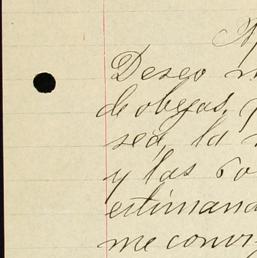 Deseo
de obejas,
sea, la
y las
estimand
me conv